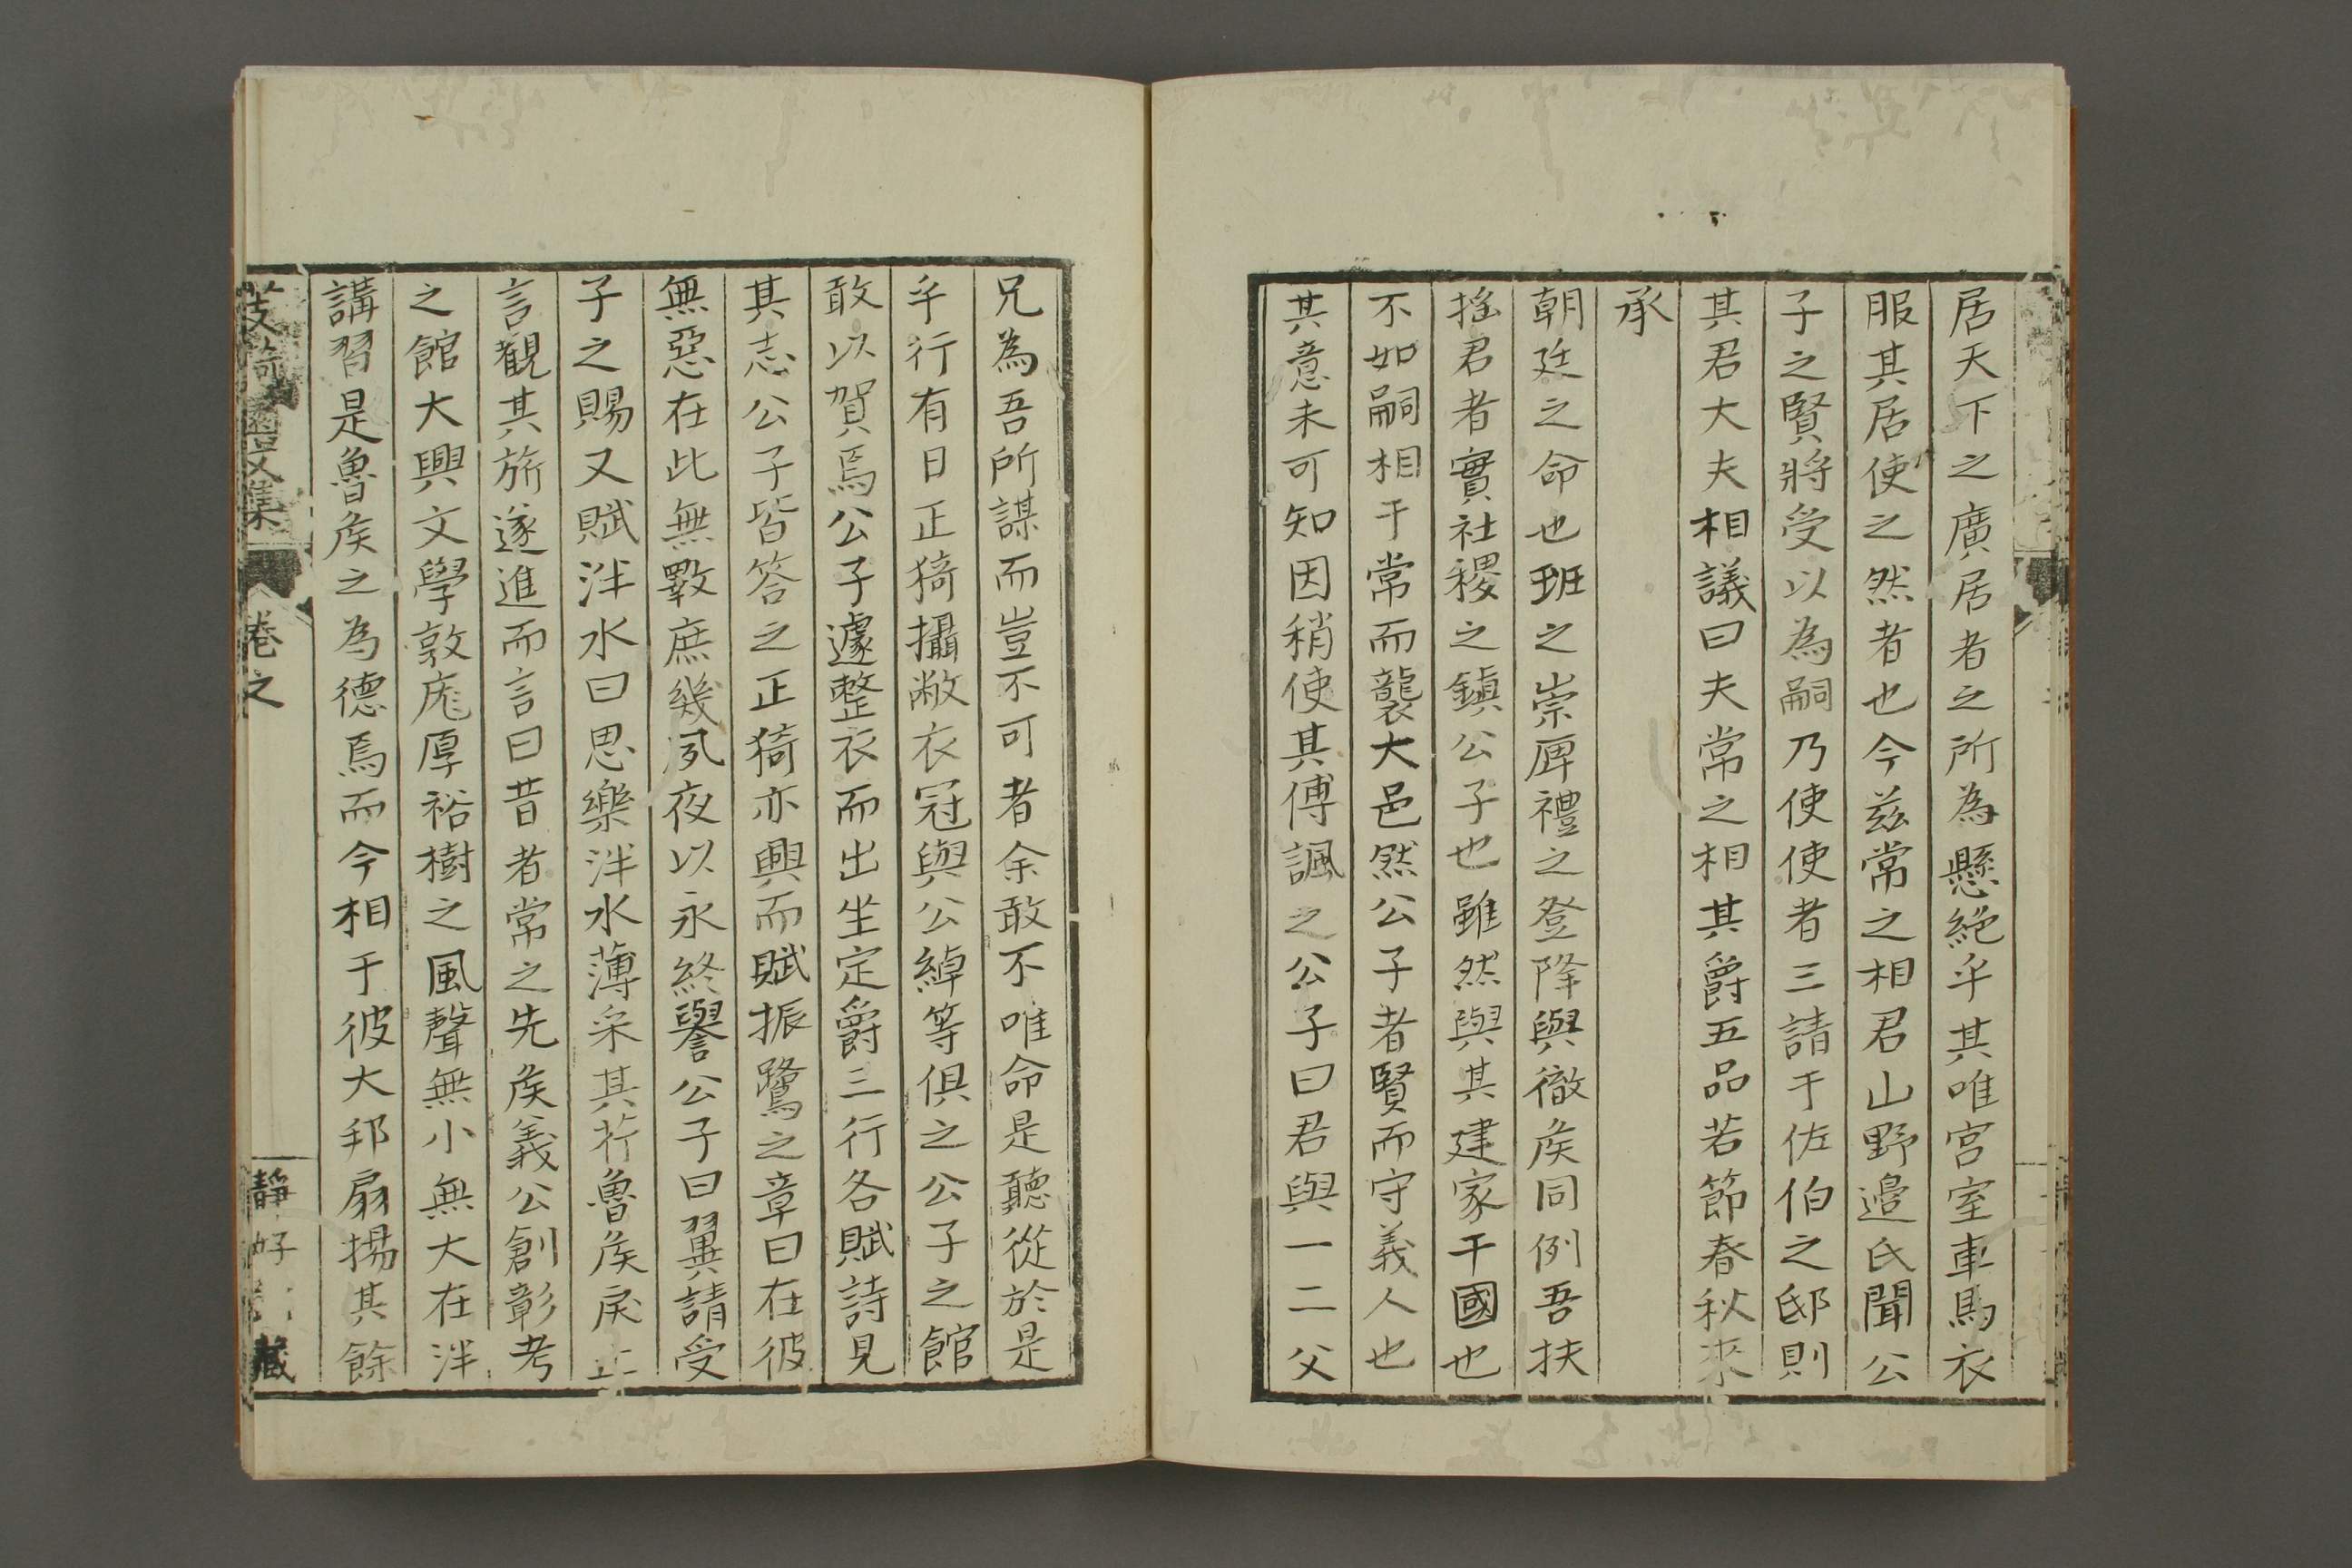 居天下之廣居者之所為懸絶乎其唯宮室車馬衣
服其居使之然者也今茲常之相君山野邉氏聞公
子之賢將受以為嗣乃使使者三請于佐伯之邸則
其君大夫相議曰夫常之相其爵五品若節春秋來
承
朝廷之命也班之崇厚禮之登降與徹矦同例吾扶
搖君者實社稷之鎮公子也雖然與其建家干國也
不如嗣相于常而襲大邑然公子者賢而守義人也
其意未可知因稍使其傅諷之公子曰君與一二父
兄為吾所謀而豈不可者余敢不唯命是聽從於是
乎行有日正猗攝敝衣冠與公綽等俱之公子之館
敢以賀焉公子遽整衣而出坐定爵三行各賦詩見
其志公子皆答之正猗亦興而賦振鷺之章曰在彼
無惡在此無斁庶幾夙夜以永終譽公子曰翼請受
子之賜又賦泮水曰思樂泮水薄采其芹魯矦戾止
言觀其旂遂進而言曰昔者常之先矦義公創彰考
之館大興文學敦庬厚裕樹之風聲無小無大在泮
講習是魯矦之為德焉而今相于彼大邦扇揚其餘
卷之
靜好 藏